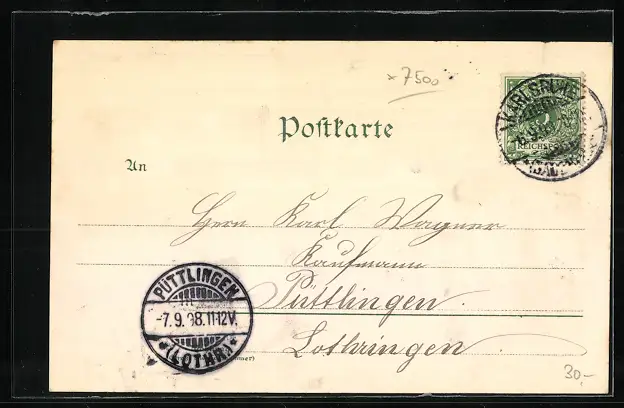 x7500
Postkarte
KARLSRUHE
6.9.
REICHSPOST
An
Herrn Karl Wagner
Kaufmann
Püttlingen
Lothringen
PÜTTLINGEN
-7.9.98.11-12V.
*(LOTHR)*
30,-